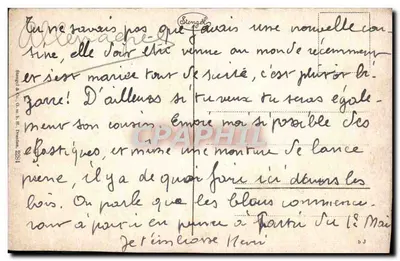 Tu ne savais pas que j'avais une nouvelle cou-
Stengel
sine, elle doit être venue au monde recemment
et s'est mariée tout de suite, c'est plutot bi-
zarre! D'ailleurs si tu veux tu seras égale-
ment son cousin. Envoie moi si possible des
élastiques, et même une monture de lance
pierre, il y a de quoi faire ici dans les
bois. On parle que les blous commence-
ront à partir en perme à partir du 1er Mai
Je t'embrasse Henri
Stengel & Co., G. m. b. H., Dresden
CPARAMA